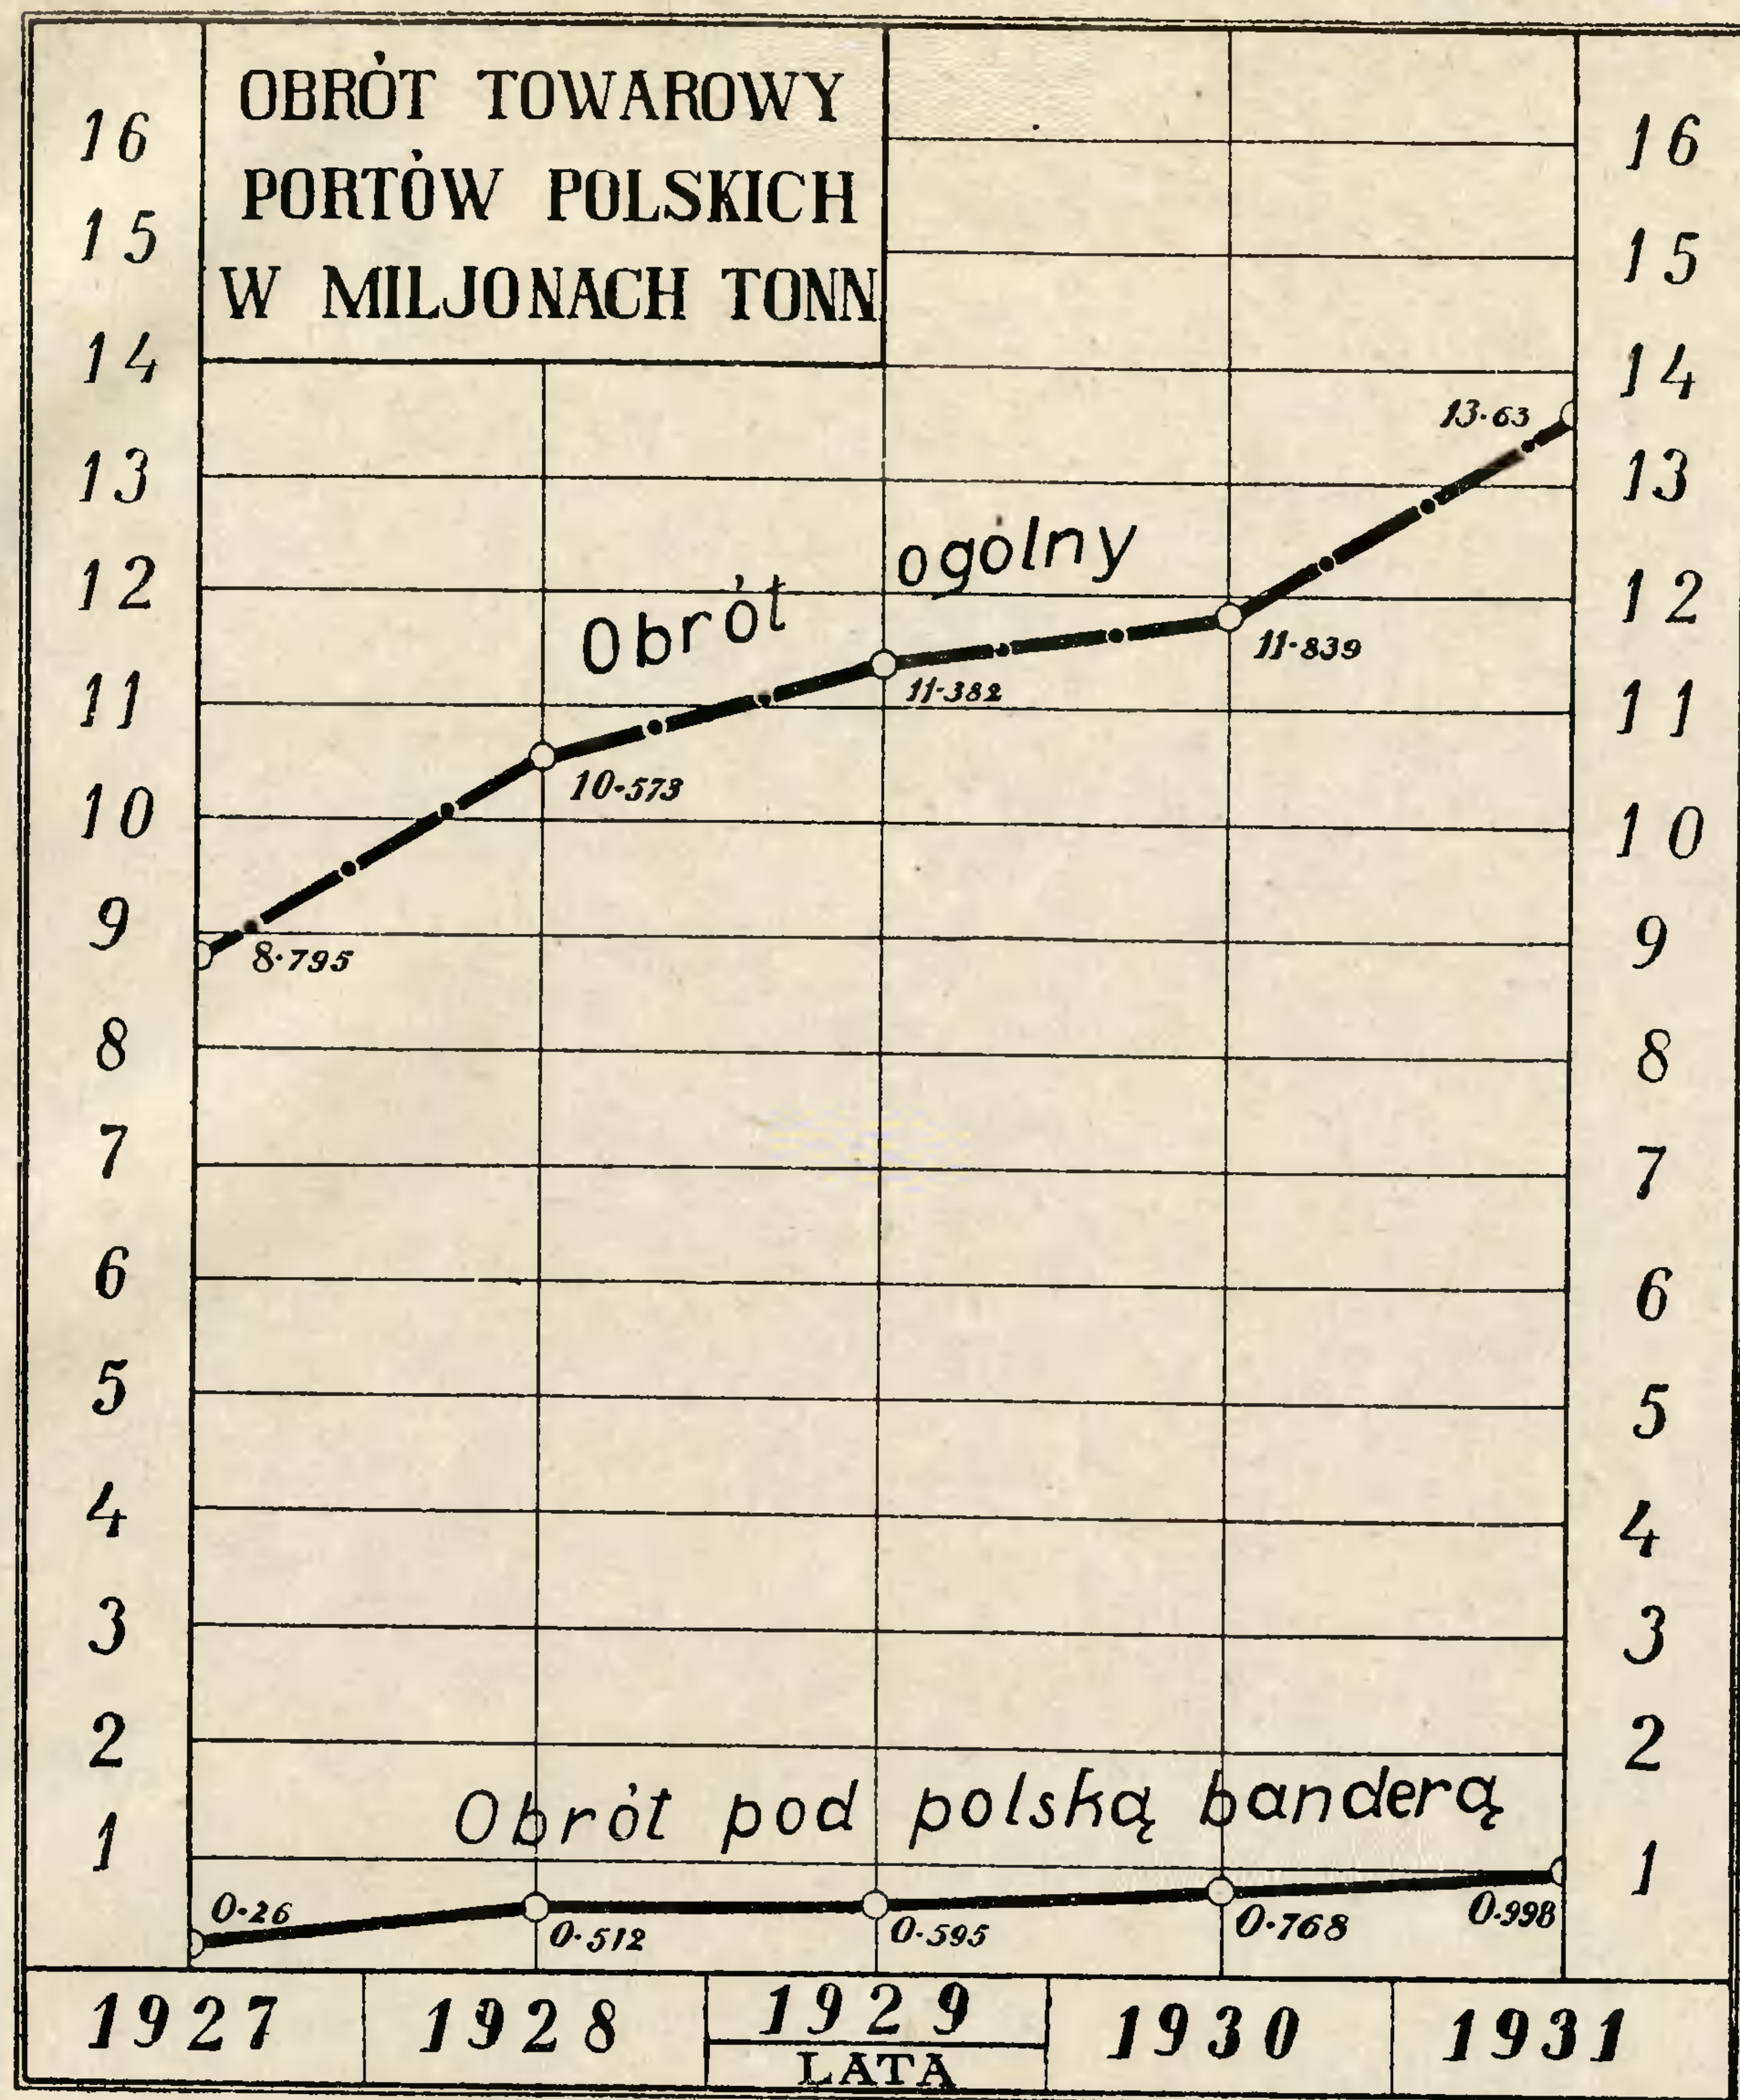 OBRÓT TOWAROWY
PORTÓW POLSKICH
W MILJONACH TONN
16
15
14
13
12
11
10
9
8
7
6
5
4
3
2
1
16
15
14
13
12
11
10
9
8
7
6
5
4
3
2
1
Obrót ogólny
8·795
10·573
11·382
11·839
13·63
Obrót pod polską banderą
0·26
0·512
0·595
0·768
0·998
1927
1928
1929
1930
1931
LATA